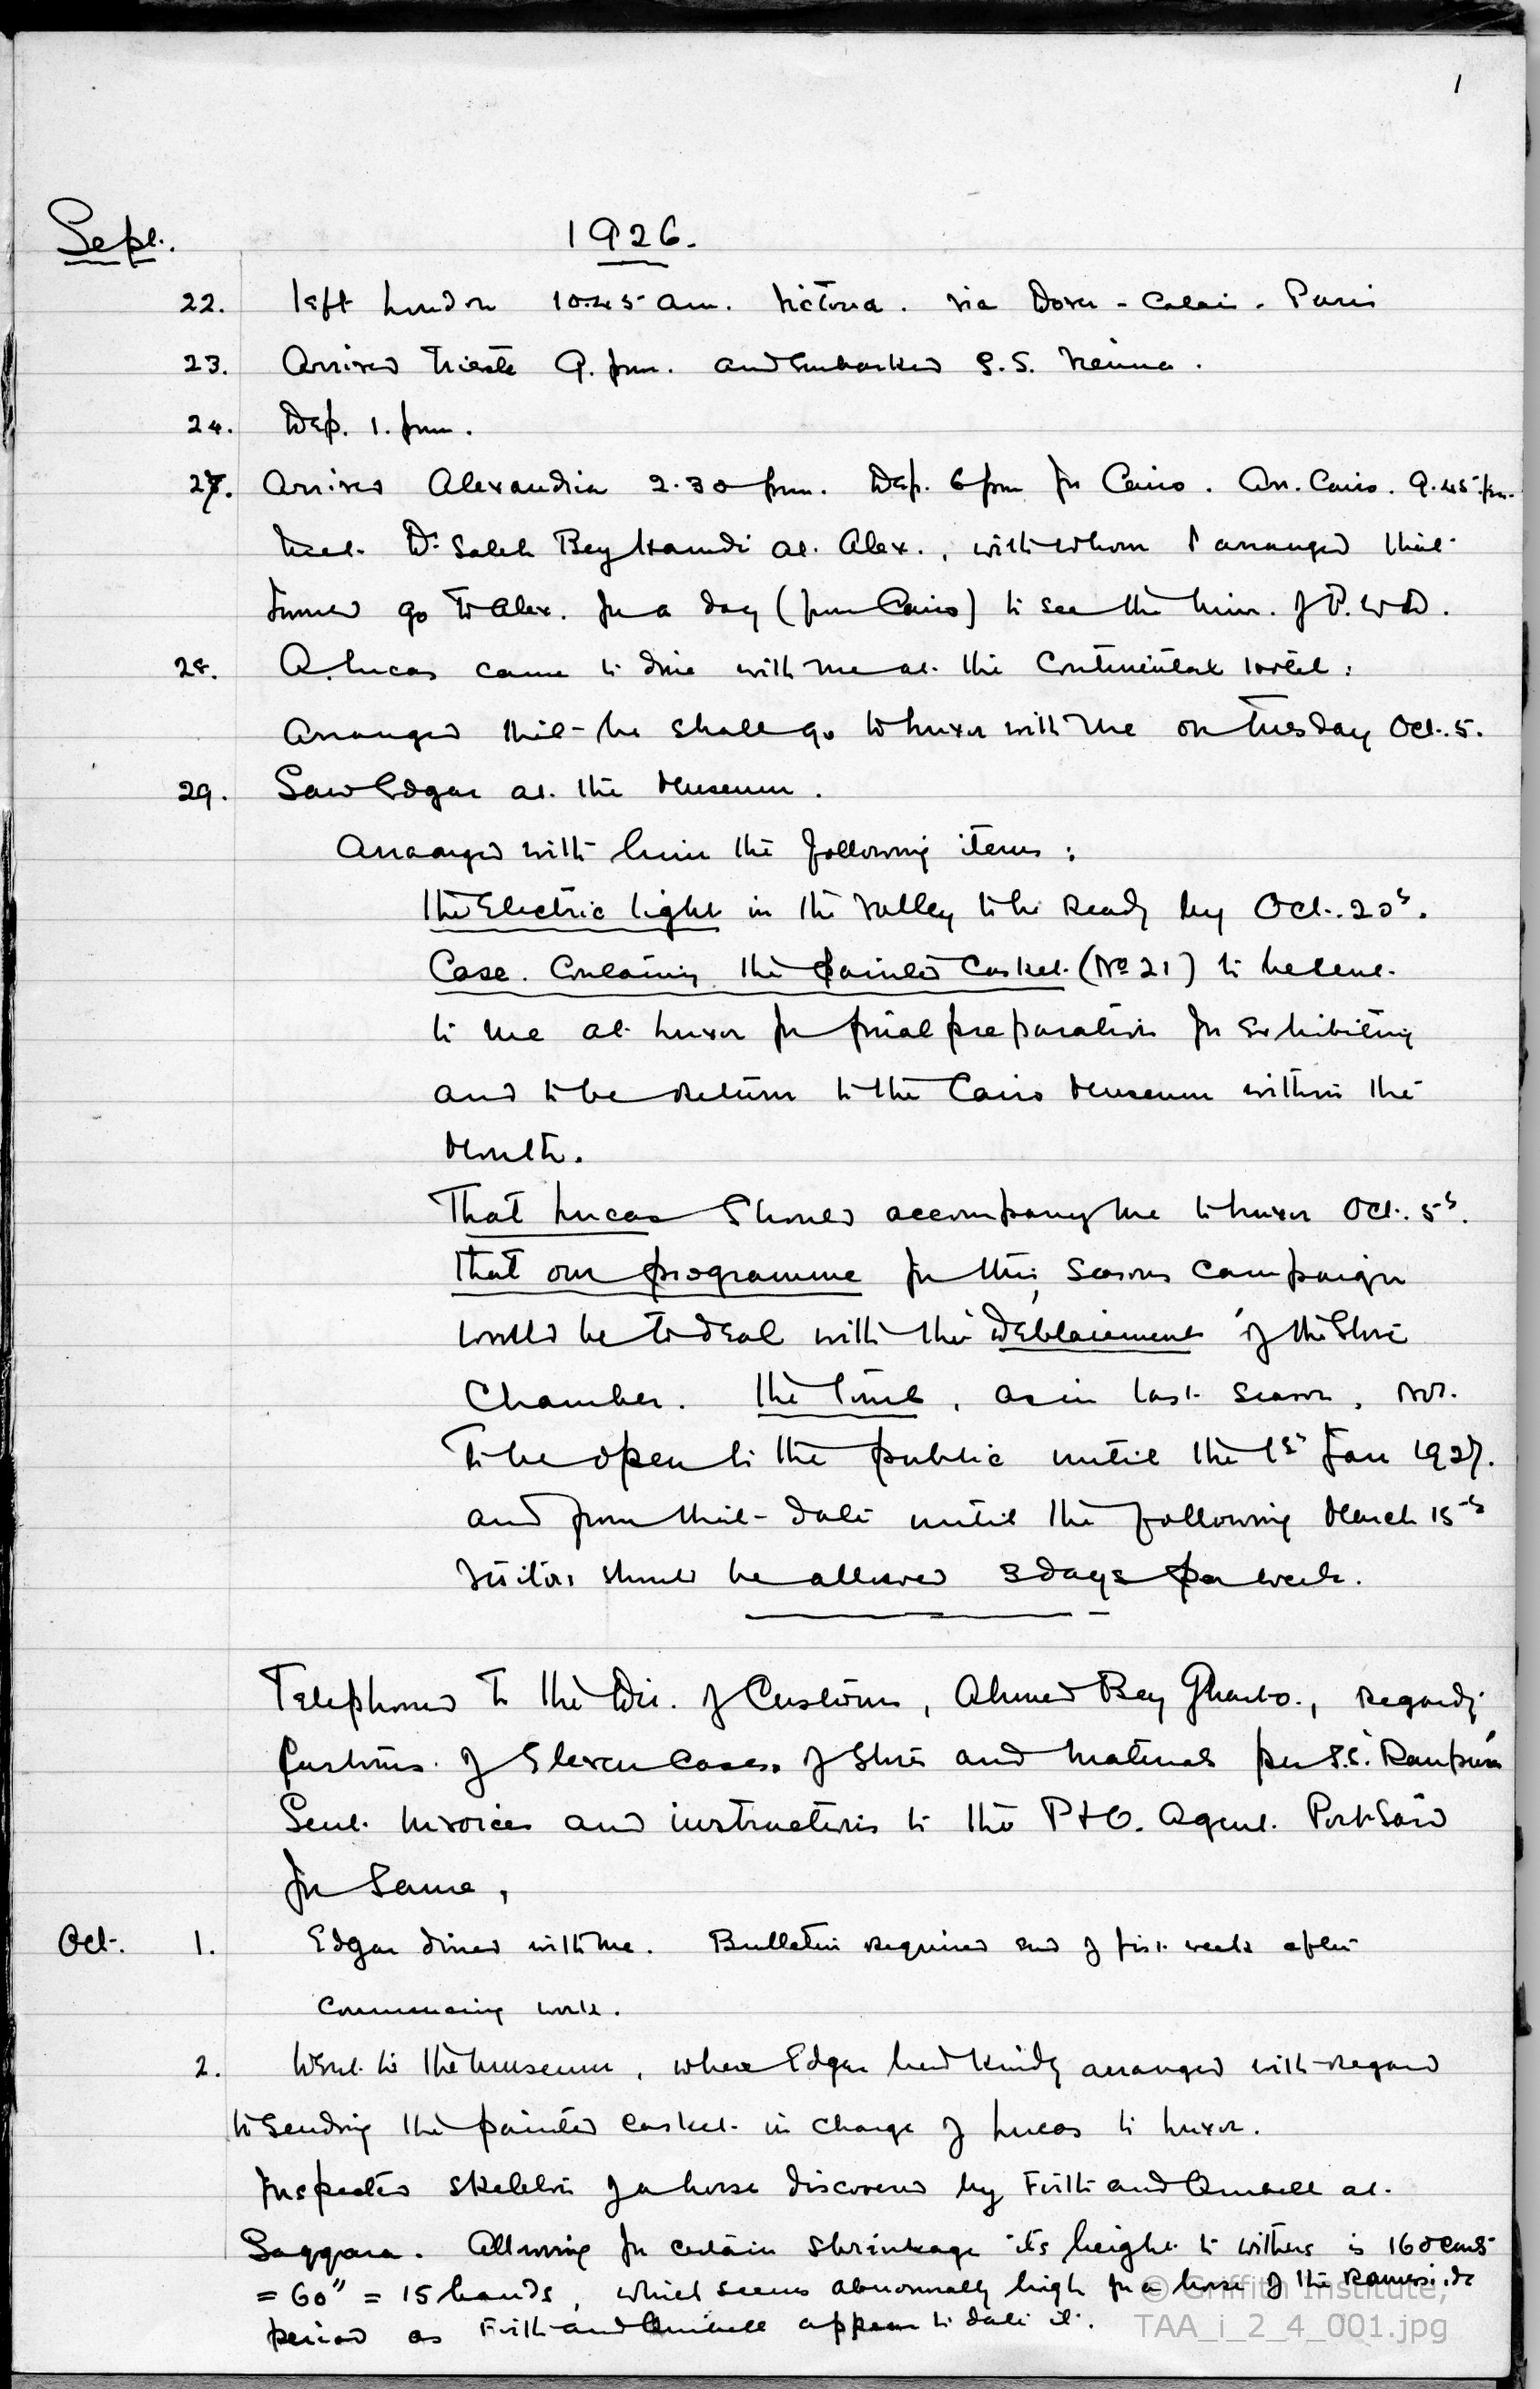 1
Sept. 1926.
22. left London 10.45 am. Victoria. via Dover - Calais - Paris
23. Arrived Trieste 9. pm. and Embarked S.S. Vienna.
24. Dep. 1. pm.
27. Arrived Alexandria 2.30 pm. Dep. 6 pm for Cairo. Arr. Cairo. 9.45 pm.
Met Dr Saleh Bey Hamdi at Alex., with whom I arranged that
I would go to Alex. for a day (from Cairo) to see the Min. of P.W.D.
28. A. Lucas came to dine with me at the Continental Hotel:
Arranged that he shall go to Luxor with me on Tuesday Oct. 5.
29. Saw Edgar at the Museum.
Arranged with him the following items:
the Electric light in the Valley to be ready by Oct. 20th.
Case. Containing the painted Casket (No 21) to be sent
to me at Luxor for final preparation for Exhibiting
and to be return to the Cairo Museum within the
Month.
That Lucas should accompany me to Luxor Oct. 5th.
That our programme for this seasons campaign
would be to deal with the déblaiement of the Store
Chamber. the Tomb, as in last season, not
to be open to the public until the 1st Jan 1927.
and from that date until the following March 15th
visitors should be allowed 3 days per week.
Telephoned to the Dir. of Customs, Ahmed Bey, regardg
customs of Eleven Cases. of Stores and Materials per S.S. Ranpura
Sent Invoices and instructions to the P & O. Agent. Port Said
for Same.
Oct. 1. Edgar dined with me. Bulletin required end of first week after
commencing work.
2. Went to the Museum, where Edgar had kindly arranged with regard
to Sending the painted casket in charge of Lucas to Luxor.
Inspected skeleton of a horse discovered by Firth and Quibell at
Saqqara. Allowing for certain shrinkage its height to withers is 160 cms
= 60" = 15 hands, which seems abnormally high for a horse of the Ramesside
period as Firth and Quibell appear to date it.
© Griffith Institute,
TAA_i_2_4_001.jpg